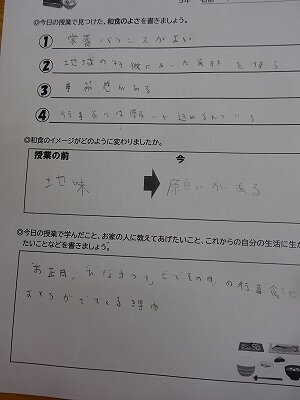 5年
◎今日の授業で見つけた、和食のよさを書きましょう。
① 栄養バランスがよい
② 地域の特徴にあった食材を使う
③ 季節感がある
④ 行事食には願いが込められている
◎和食のイメージがどのように変わりましたか。
授業の前 今
地味 願いがある
◎今日の授業で学んだこと、お家の人に教えてあげたいこと、これからの自分の生活に生か
たいことなどを書きましょう。
お正月、ひなまつり、こどもの日の行事食に
がでてくる理由